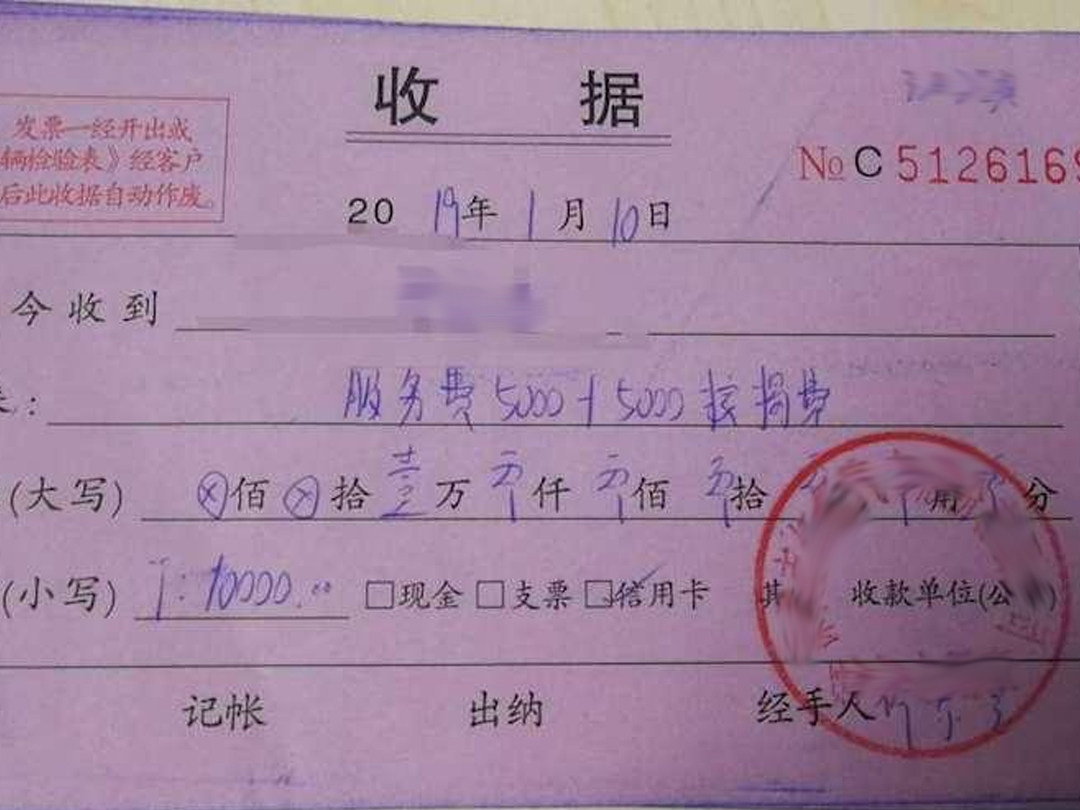 收 据
发票一经开出或
辆检验表》经客户
后此收据自动作废。
№ C 5126169
20 19年 1月 10日
今收到
服务费5000+5000按揭费
(大写) ⊗佰⊗拾壹万零仟零佰零拾 角 分
(小写) 10000.00 □现金 □支票 □信用卡 其 收款单位(公
记帐 出纳 经手人